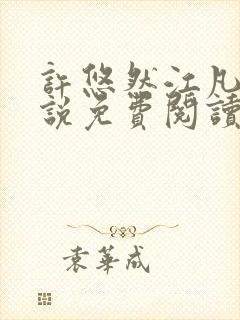 許悠然江凡
說免費閱讀
袁華成